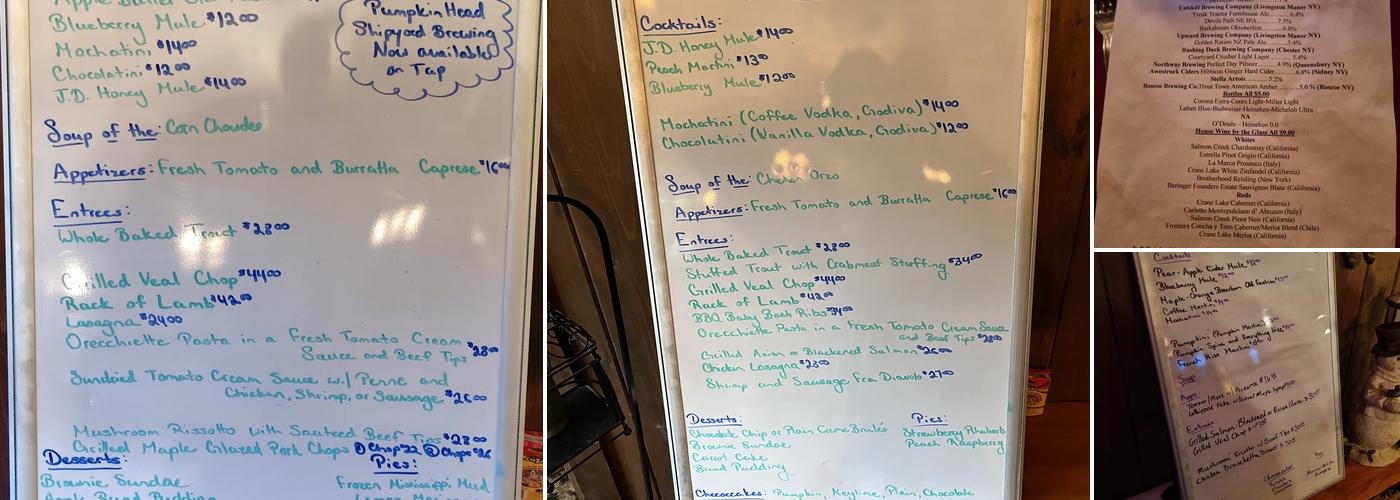 Blueberry Mule $12.00
Mochatini $14.00
Chocolatini $12.00
J.D. Honey Mule $14.00
Pumpkin Head
Shipyard Brewing
Now available
on Tap
Soup of the: Corn Chowder
Appetizers: Fresh Tomato and Burratta Caprese $16.00
Entrees:
Whole Baked Trout $28.00
Grilled Veal Chop $44.00
Rack of Lamb $42.00
Lasagna $24.00
Orecchiette Pasta in a Fresh Tomato Cream
Sauce and Beef Tips $28.00
Sundried Tomato Cream Sauce w/ Penne and
Chicken, Shrimp, or Sausage $26.00
Mushroom Rissotto with Sauteed Beef Tips $28.00
Grilled Maple Glazed Pork Chops ① Chop $22 ② Chops $26
Desserts:
Pies:
Brownie Sundae
Frozen Mississippi Mud
Apple Bread Pudding
Cocktails:
J.D. Honey Mule $14.00
Peach Martini $13.00
Blueberry Mule $12.00
Mochatini (Coffee Vodka, Godiva) $14.00
Chocolatini (Vanilla Vodka, Godiva) $12.00
Soup of the: Chicken Orzo
Appetizers: Fresh Tomato and Burratta Caprese $16.00
Entrees:
Whole Baked Trout $28.00
Stuffed Trout with Crabmeat Stuffing $34.00
Grilled Veal Chop $44.00
Rack of Lamb $42.00
BBQ Baby Back Ribs $34.00
Orecchiette Pasta in a Fresh Tomato Cream Sauce
and Beef Tips $28.00
Grilled Asian or Blackened Salmon $26.00
Chicken Lasagna $23.00
Shrimp and Sausage Fra Diavolo $27.00
Desserts:
Pies:
Chocolate Chip or Plain Creme Brulée
Strawberry Rhubarb
Brownie Sundae
Peach Raspberry
Carrot Cake
Bread Pudding
Cheesecakes: Pumpkin, Keylime, Plain, Chocolate
Catskill Brewing Company (Livingston Manor NY)
Freak Tractor Farmhouse Ale.......6.4%
Devils Path NE IPA..........7.5%
Barkaboom Oktoberfest..........6.8%
Upward Brewing Company (Livingston Manor NY)
Golden Ration NZ Pale Ale......5.4%
Rushing Duck Brewing Company (Chester NY)
Courtyard Crusher Light Lager ......5.4%
Northway Brewing Perfect Day Pilsner..........4.9% (Queensbury NY)
Awestruck Ciders Hibiscus Ginger Hard Cider..........6.8% (Sidney NY)
Stella Artois..........5.2%
Roscoe Brewing Co. Trout Town American Amber..........5.0 % (Roscoe NY)
Bottles All $5.00
Corona Extra-Coors Light-Miller Light
Labatt Blue-Budweiser-Heineken-Michelob Ultra
NA
O'Douls – Heineken 0.0
House Wine by the Glass All $9.00
Whites
Salmon Creek Chardonnay (California)
Estrella Pinot Grigio (California)
La Marco Prosecco (Italy)
Crane Lake White Zinfandel (California)
Brotherhood Reisling (New York)
Beringer Founders Estate Sauvignon Blanc (California)
Reds
Crane Lake Cabernet (California)
Carletto Montepulciano d' Abruzzo (Italy)
Salmon Creek Pinot Noir (California)
Frontera Concha y Toro Cabernet/Merlot Blend (Chile)
Crane Lake Merlot (California)
Cocktails:
Pear-Apple Cider Mule
Blueberry Mule
Maple-Orange Bourbon Old Fashion
Coffee Martini
Mochatini
Pumpkin Spice and Everything
French Kiss Martini
Soup
Apps:
Entrees
Grilled Salmon Blackened or Asian Glaze
Grilled Veal Chop
Mushroom Risotto w/ Beef Tips
Chicken Bruschetta Dinner